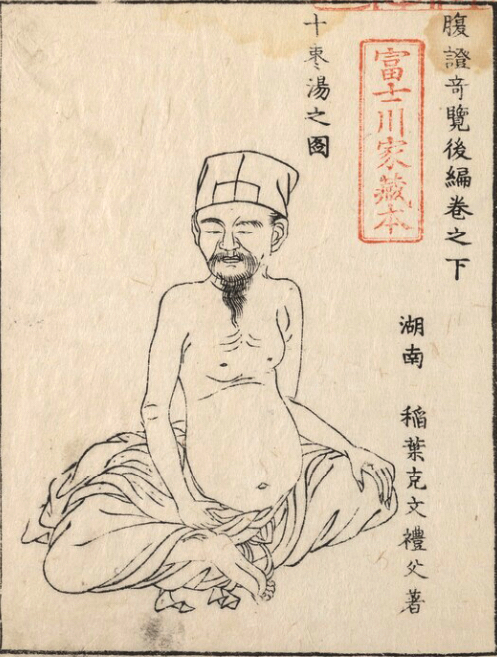 腹證奇覽後編卷之下
湖南 稲葉克文禮父著
富士川家藏本
十棗湯之圖